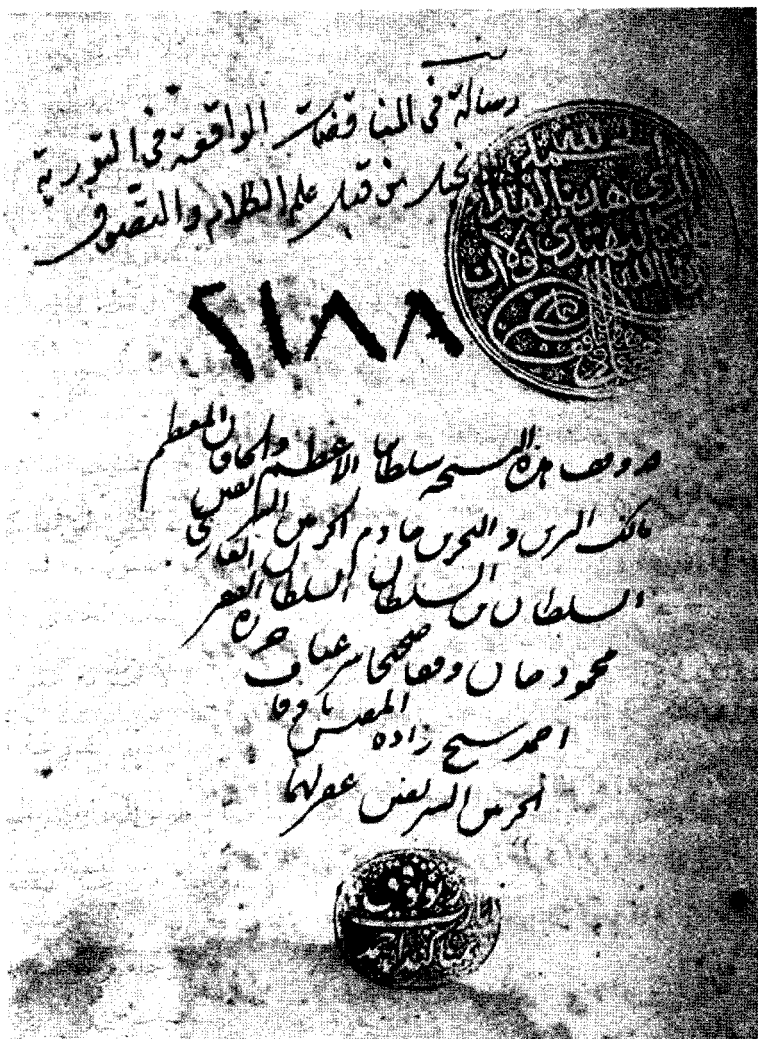 رسالة في المناقضات الواقعة في التورية
نجيل من قبل علم الكلام والتصوف
الحمد لله الذي
هدينا لهذا وما
كنا لنهتدي لولا ان
هدينا الله
٢١٨٨
قد وقف هذه النسخة سلطاننا الاعظم والخاقان المعظم
مالك البرين والبحرين خادم الحرمين الشريفين
السلطان بن السلطان السلطان الغازي
محمود خان وقفا صحيحا شرعيا حرره الفقير
احمد شيخ زاده المفتش باوقاف
الحرمين الشريفين غفر لهما